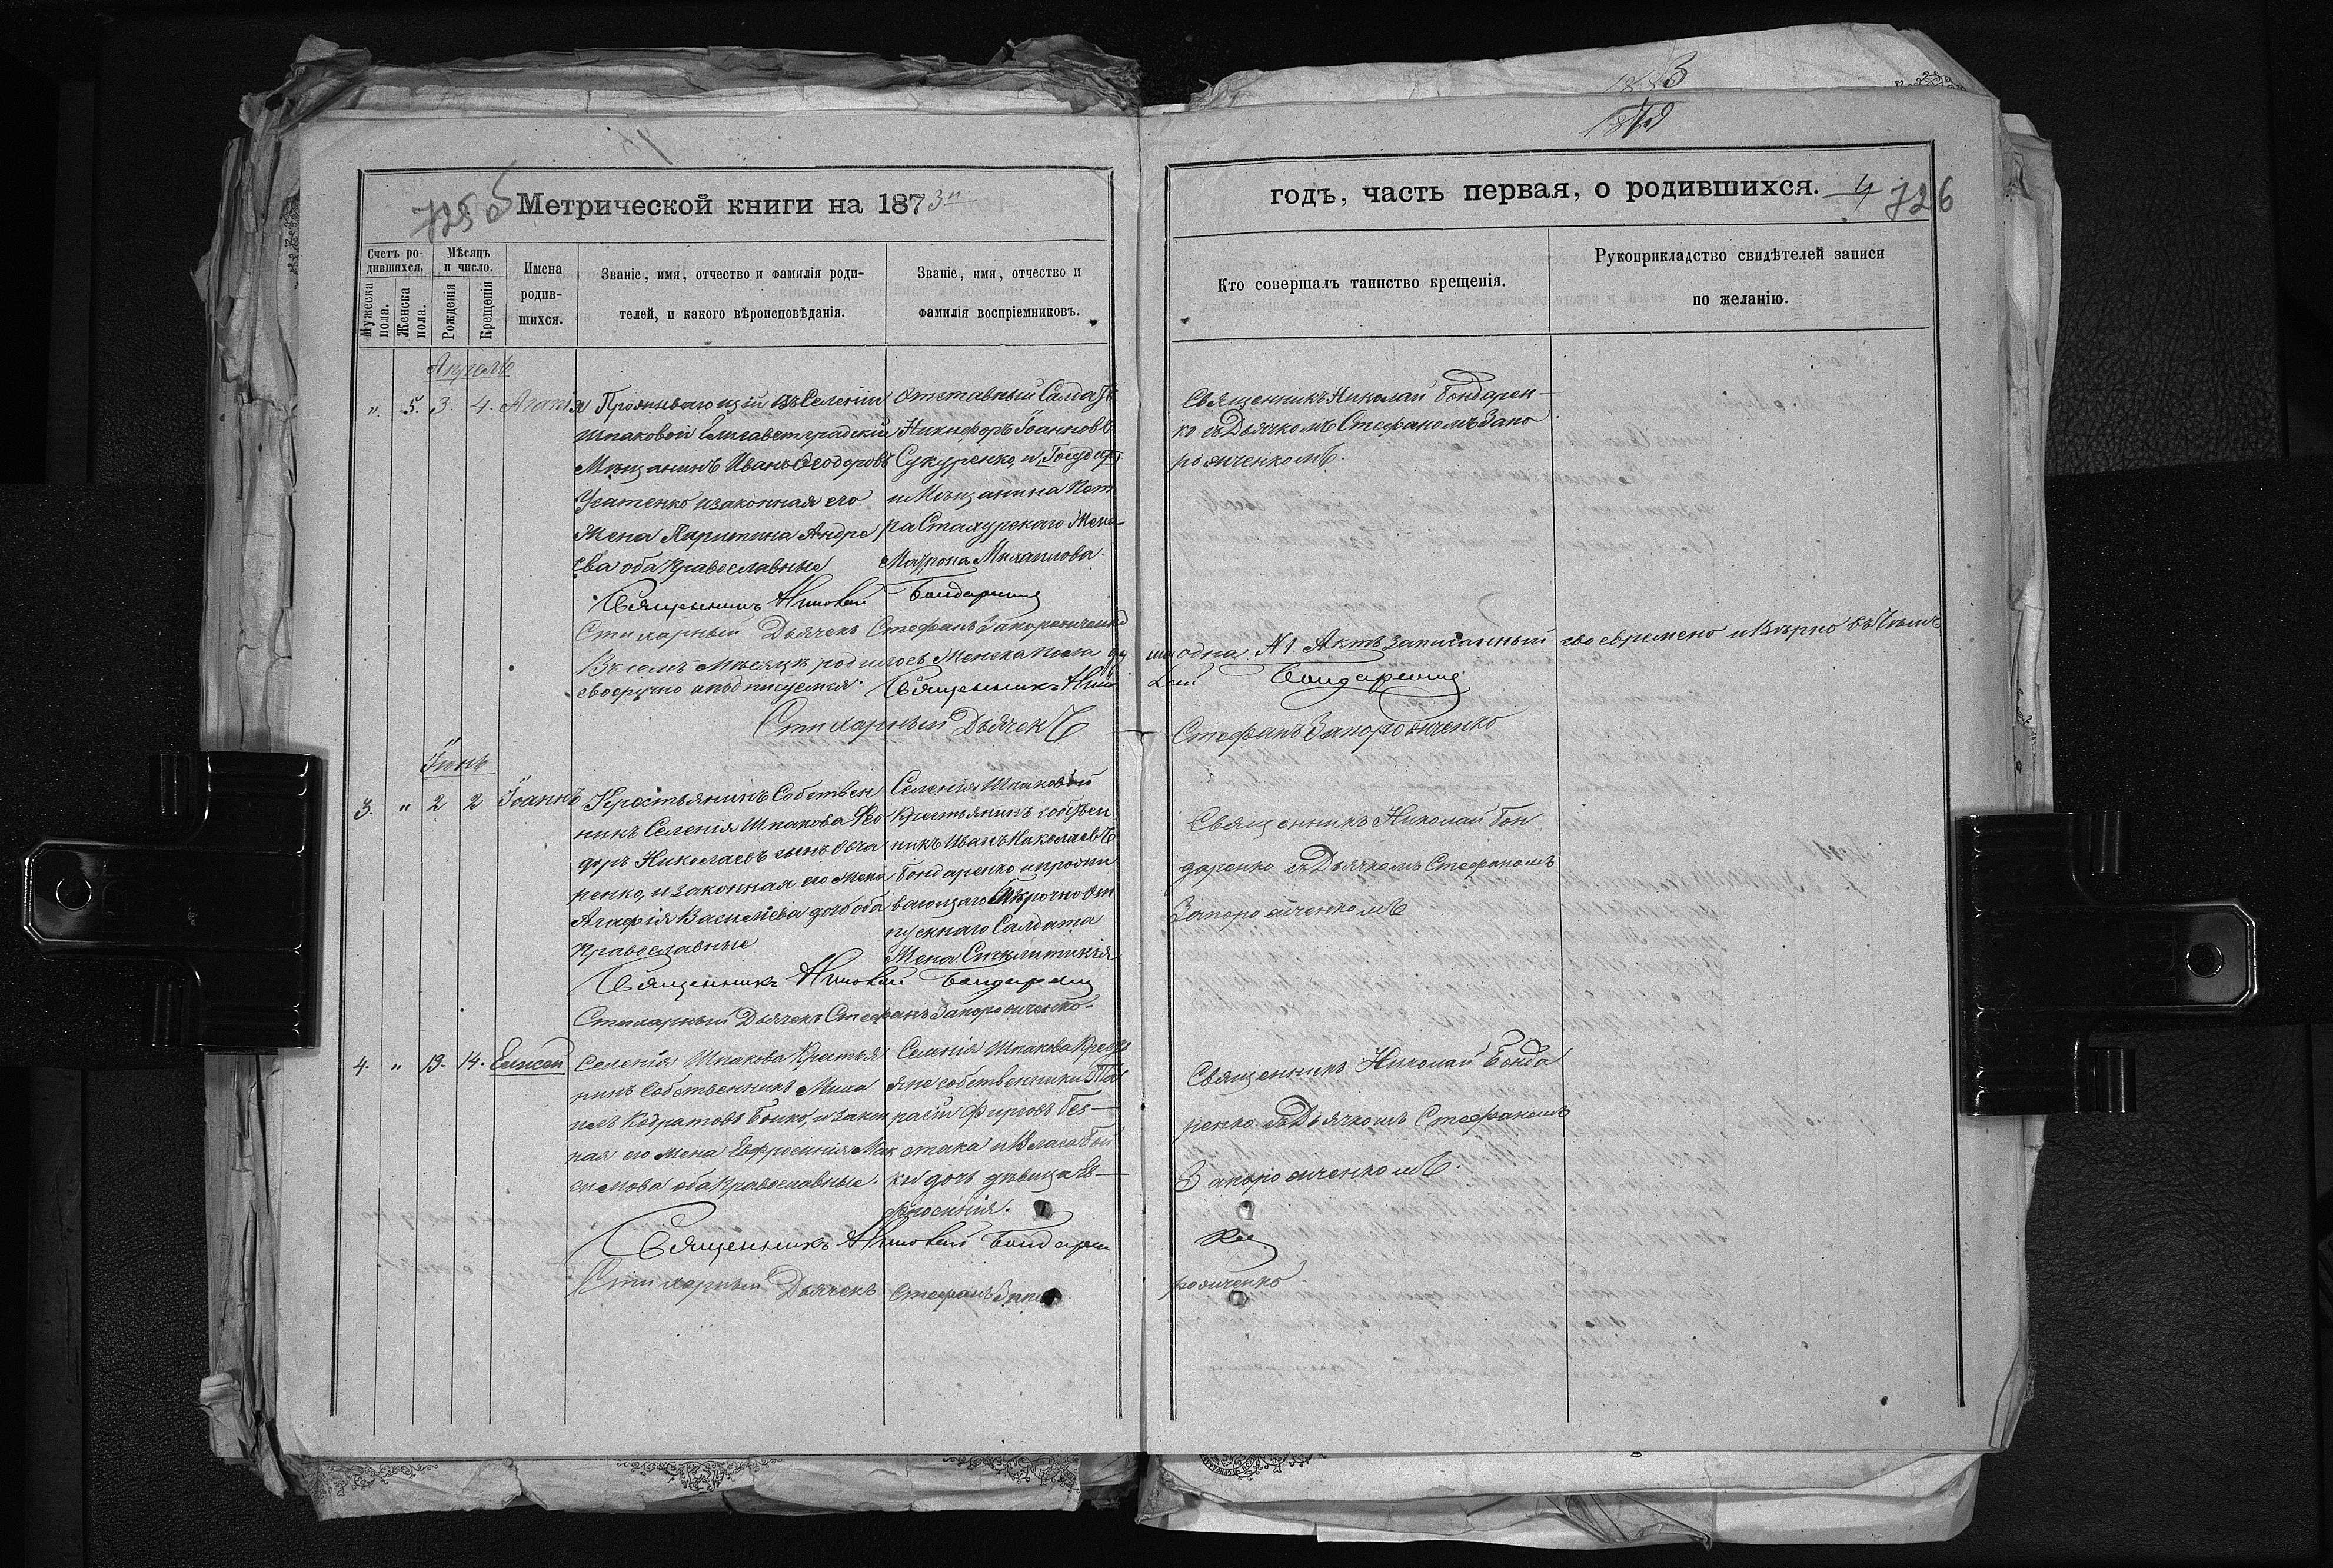 725
Метрической книги на 1873й
Счетъ ро-
дившихся.
Мѣсяцъ
и число.
Мужеска
пола.
Женска
пола.
Рожденія
Крещенія
Имена
родив-
шихся.
Званіе, имя, отчество и фамилія роди-
телей, и какого вѣроисповѣданія.
Званіе, имя, отчество и
фамилія воспріемниковъ.
Апрель
" 5. 3. 4. Агапія
Проживающій въ Селеніи
Шпаковой Елисаветградскій
Мѣщанинъ Иванъ Феодоровъ
Усатенко и законная его
Жена Харитина Андре
ева оба Православные
Отставный Салдатъ
Никифоръ Іоанновъ
Сукуренко, и
и Мѣщанина Пет
ра Стахурскаго Жена
Матрона Михаилова.
Священникъ Николай Бондаренко
Стихарный Дьячекъ Стефанъ Запорожченко
Въ семъ Мѣсяцѣ родилось Женска пола ду
своеручно и подписуемся. Священникъ Нико
Стихарный Дьячекъ
Іюнь
3. " 2 2 Іоаннъ
Крестьянинъ Собствен
никъ Селенія Шпакова Фео
доръ Николаевъ сынъ
ренко, и законная его жена
Агафія Василіева дочь оба
Православные
Селенія Шпаковой
Крестьянинъ собствен
никъ Иванъ Николаевъ
Бондаренко и прожи
вающаго Безсрочно от
пускнаго Салдата
Жена Стклитикія
Священникъ Николай Бондаренко
Стихарный Дьячекъ Стефанъ Запорожченко
4. " 13. 14. Елисей
Селенія Шпакова Крестья
нинъ Собственникъ Миха
илъ Кодратовъ Бойко, и закон
ная его жена Евфросинія Мак
симова оба православные.
Селенія Шпакова Кресть
яне собственники
расій Фирсовъ Без-
стака и Влага Бой
ки дочь дѣвица Ев-
фросинія.
Священникъ Николай Бондаре
Стихарный Дьячекъ Стефанъ Запо
годъ, часть первая, о родившихся. 4 726
Кто совершалъ таинство крещенія.
Рукоприкладство свидѣтелей записи
по желанію.
Священникъ Николай Бондарен-
ко съ Дьячкомъ Стефаномъ Запо
рожченкомъ.
ша одна №1. Актъ записанный своевремено и вѣрно въ чемъ
лай Бондаренко
Стефанъ Запорожченко
Священникъ Николай Бон
даренко съ Дьячкомъ Стефаномъ
Запорожченкомъ
Священникъ Николай Бонда
ренко съ Дьячкомъ Стефаномъ
Запорожченкомъ.
рожченко